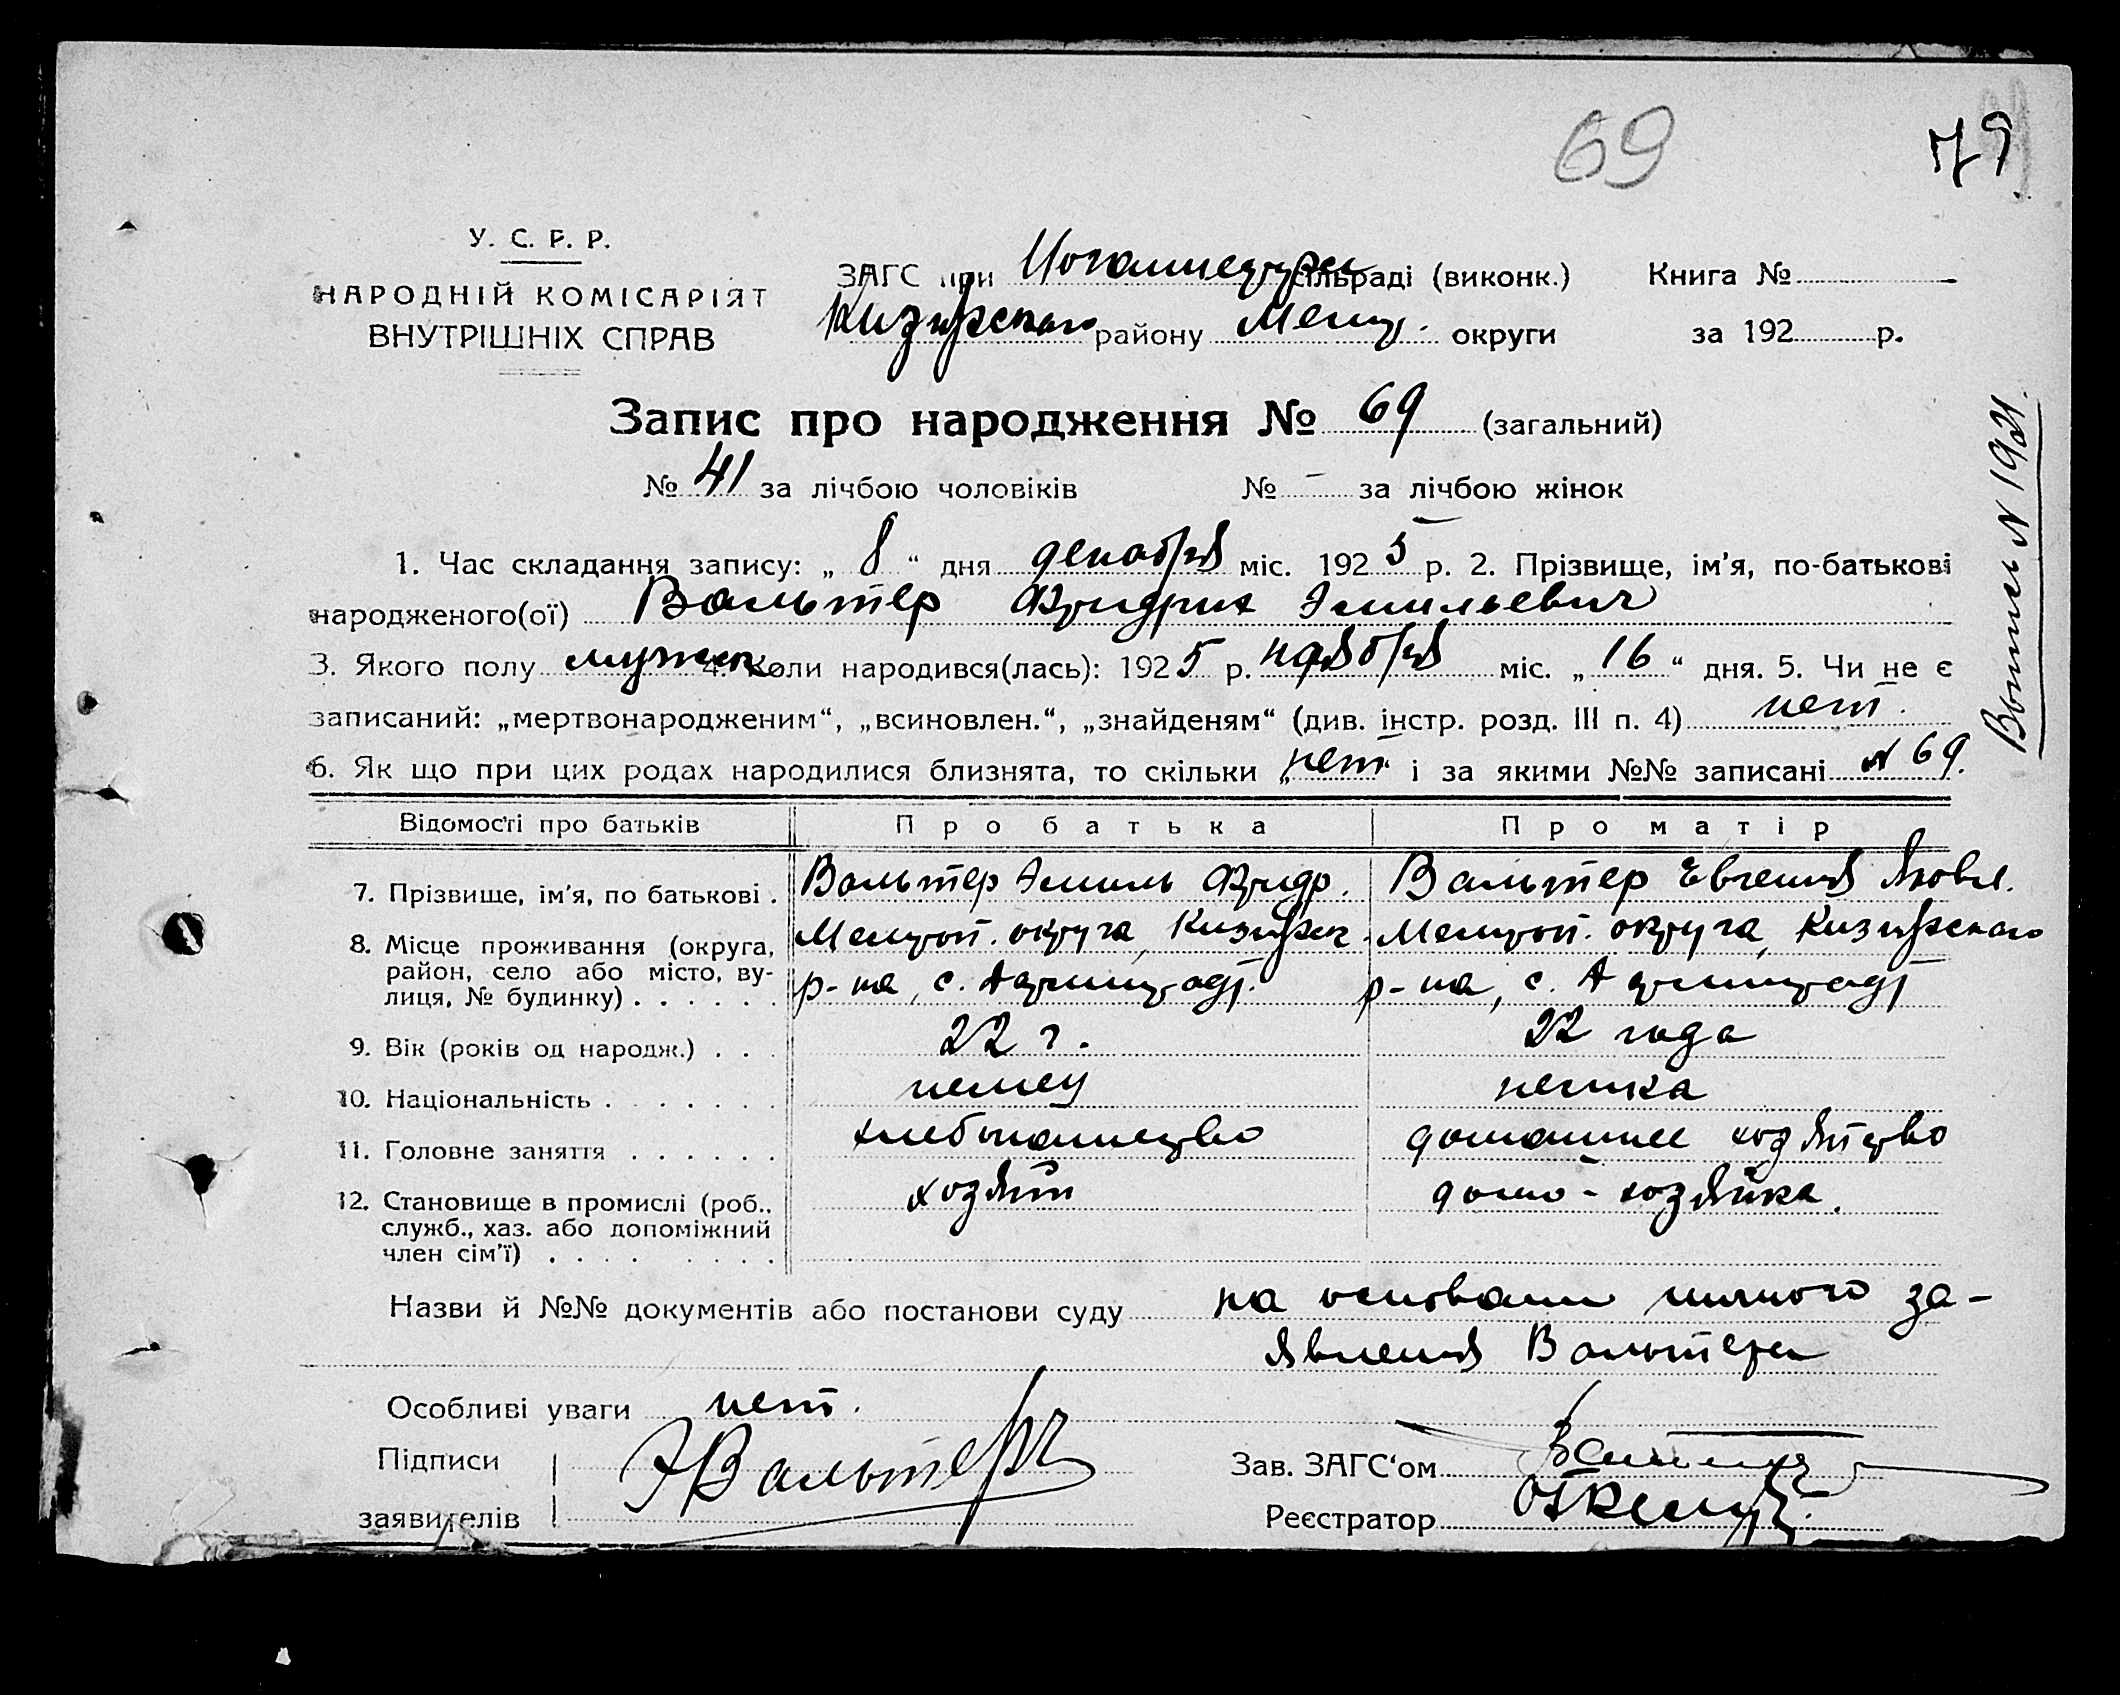 69
79
У. С. Р. Р.
НАРОДНІЙ КОМІСАРІЯТ
ВНУТРІШНІХ СПРАВ
ЗАГС при сільраді (виконк.) Книга №
району Мелит. округи за 192 р.
Запис про народження № 69 (загальний)
№ 41 за лічбою чоловіків № - за лічбою жінок
1. Час складання запису: „ 8 “ дня декабря міс. 1925 р. 2. Прізвище, ім'я, по-батькові
народженого(ої) Вальтер Фридрих Эмильевич
3. Якого полу мужск. 4. Коли народився(лась): 1925 р. ноября міс. „ 16 “ дня. 5. Чи не є
записаний: „мертвонародженим“, „всиновлен.“, „знайденям“ (див. інстр. розд. III п. 4) нет.
6. Як що при цих родах народилися близнята, то скільки „ нет “ і за якими №№ записані № 69.
Відомості про батьків Про батька Про матір
7. Прізвище, ім'я, по батькові . Вальтер Эмиль Фридр. Вальтер Евгения Яковл.
8. Місце проживання (округа, район, село або місто, вулиця, № будинку) . . . . . .
Мелитоп. округа, Мелитоп. округа,
р-на, с. р-на, с.
9. Вік (років од народж.) . . . 22 г. 22 года
10. Національність . . . . . . . немец немка
11. Головне заняття . . . . . . хлебопашество домашнее хозяйство
12. Становище в промислі (роб., служб., хаз. або допоміжний член сім'ї) . . . . . . . . хозяин домо-хозяйка.
Назви й №№ документів або постанови суду на основании личного за-
явления Вальтера
Особливі уваги нет.
Підписи
заявителів
Э Вальтер
Зав. ЗАГС'ом
Реєстратор